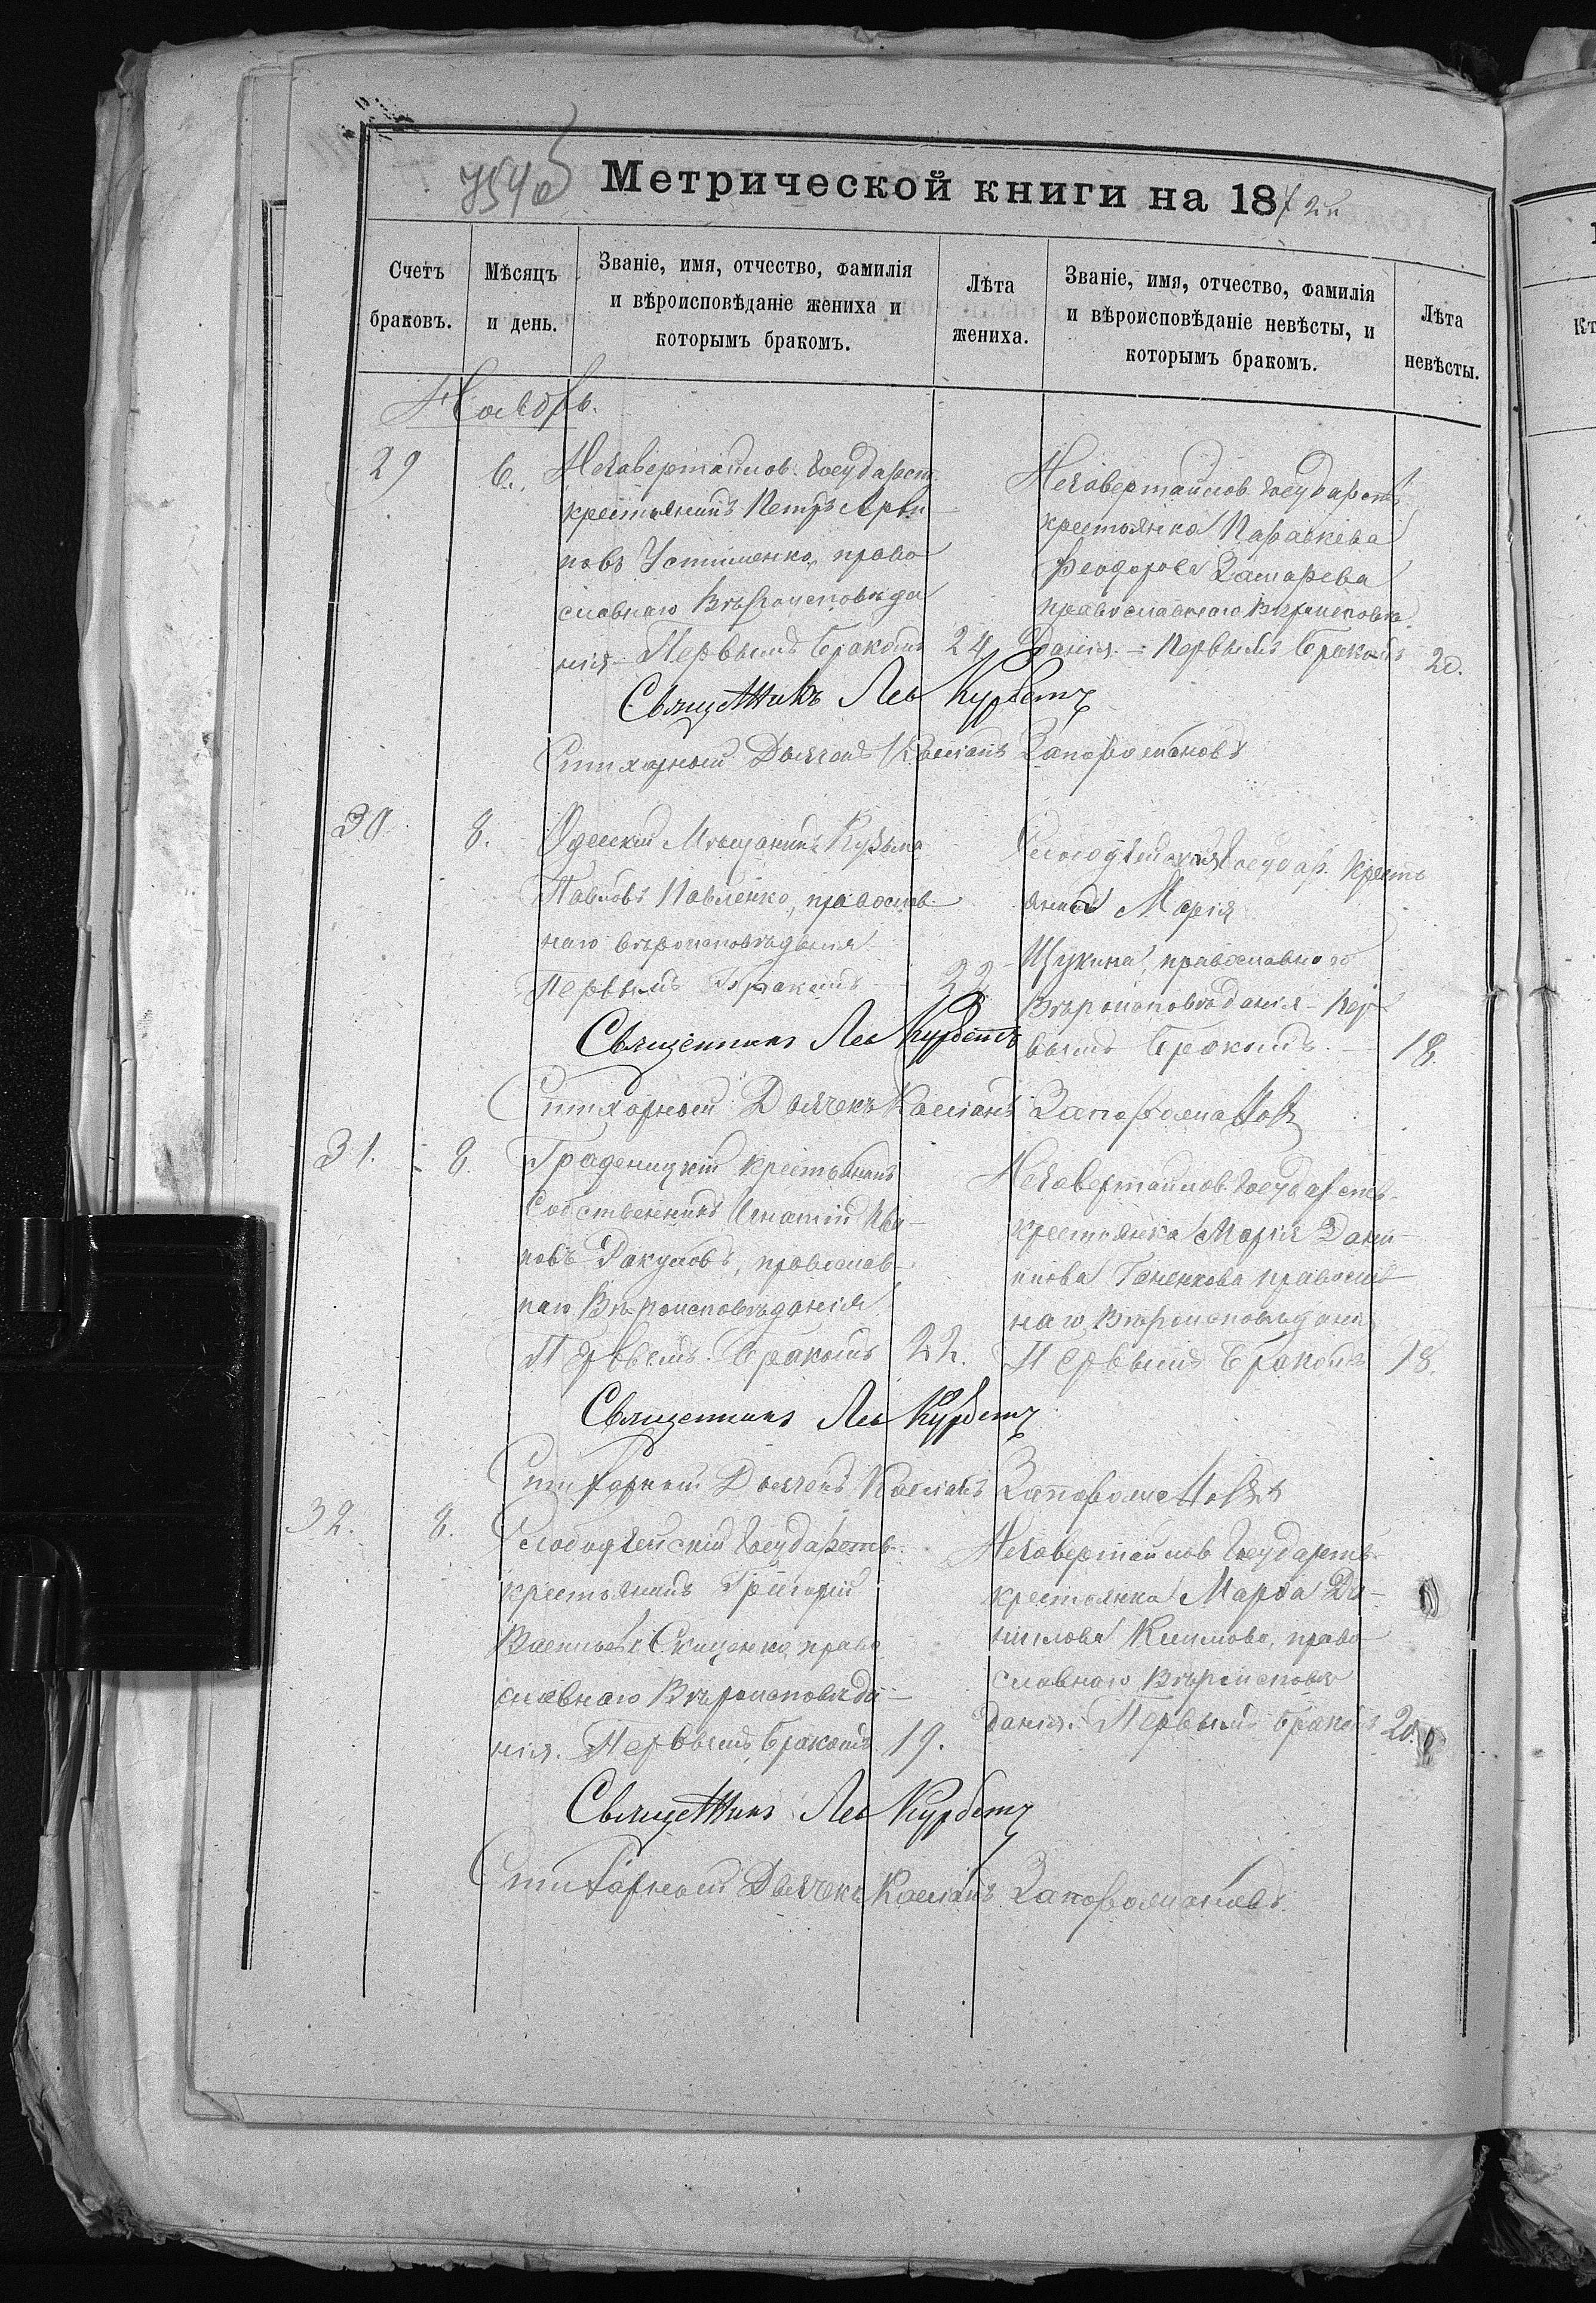 754об Метрической книги на 1872й
Счетъ браковъ.
Мѣсяцъ и день.
Званіе, имя, отчество, фамилія и вѣроисповѣданіе жениха и которымъ бракомъ.
Лѣта жениха.
Званіе, имя, отчество, фамилія и вѣроисповѣданіе невѣсты, и которымъ бракомъ.
Лѣта невѣсты.
Ноябрь.
29
6.
Незавертайлов. Государст.
крестьянинъ Петръ
повъ Устименко, право
славнаго Вѣроисповѣда
нія – Первымъ бракомъ
24
Незавертайлов Государств
крестьянка Параскева
Феодорова
православнаго Вѣроисповѣ
данія. – Первымъ бракомъ
20.
Священникъ Лев Курбетъ
Стихарный Дьячокъ Касіанъ Запорожановъ
30.
8.
Одесскій Мѣщанинъ Кузьма
Павловъ Павленко, православ-
наго вѣроисповѣданія
Первымъ Бракомъ –
22
Слободзейская Государ. Кресть
янка Марія
Щукина, православнаго
Вѣроисповѣданія – Пер
вымъ бракомъ.
18.
Священникъ Лев Курбетъ
Стихарный Дьячекъ Касіанъ Запорожановъ
31.
8.
Граденицкій крестьянинъ
Собственникъ Игнатій Ива-
новъ Ракуловъ, православ-
наго Вѣроисповѣданія
Первымъ бракомъ
22.
Незавертайлов. Государств-
крестьянка Марія Дани-
лова Ганенкова православ
наго Вѣроисповѣданія
Первымъ бракомъ
18.
Священникъ Лев Курбетъ
Стихарный Дьячокъ Касіанъ Запорожановъ
32.
8.
Слободзейскій Государств-
крестьянинъ Григорій
Васильев Скиценко, право
славнаго Вѣроисповѣда-
нія. Первымъ бракомъ
19.
Незавертайлов Государств-
крестьянка Марѳа Да-
нилова Климова, право
славнаго Вѣроисповѣ
данія. Первымъ бракомъ
20.
Священникъ Лев Курбетъ
Стихарный Дьячекъ Касіанъ Запорожановъ.